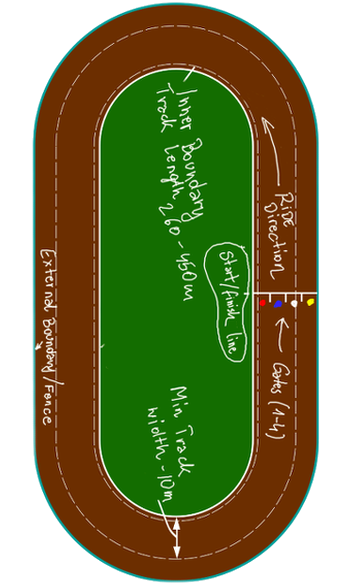 Inner Boundary
Track Length 260-450m
Ride
Direction
Start/finish line
Gates (1-4)
Min Track
width - 10m
External Boundary/Fence